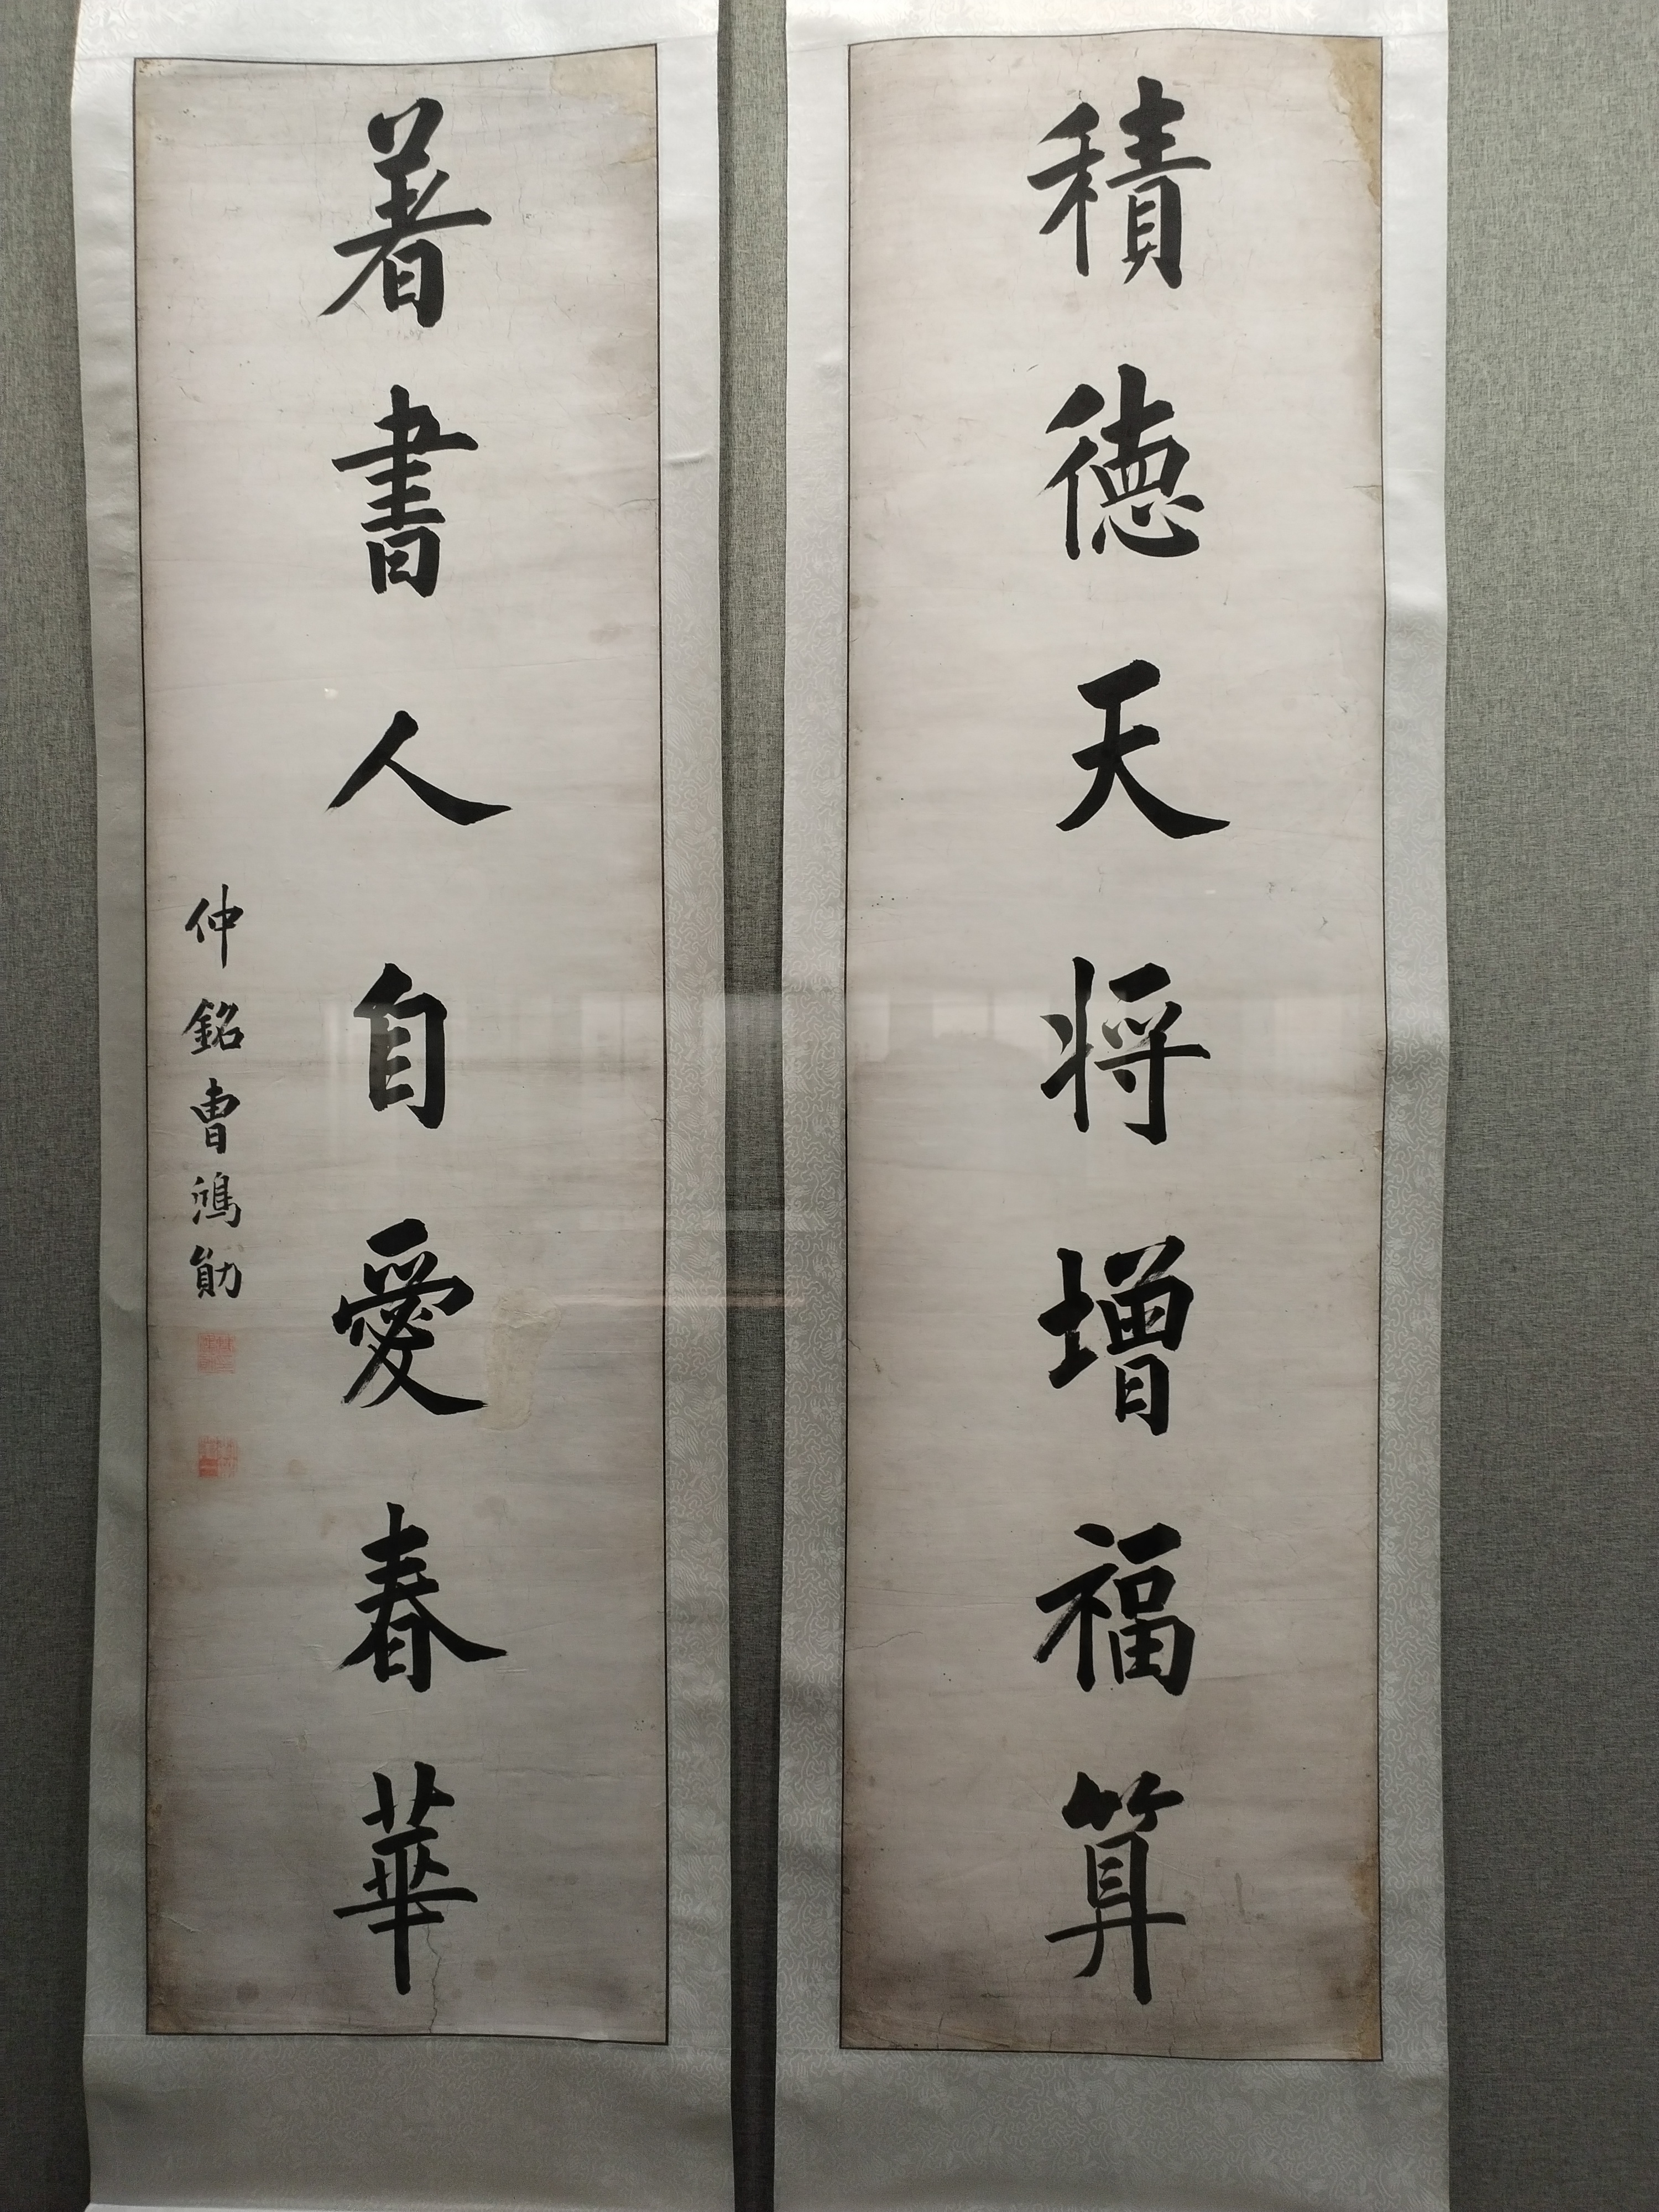 積德天将增福算
著書人自愛春華
仲銘曹鴻勛